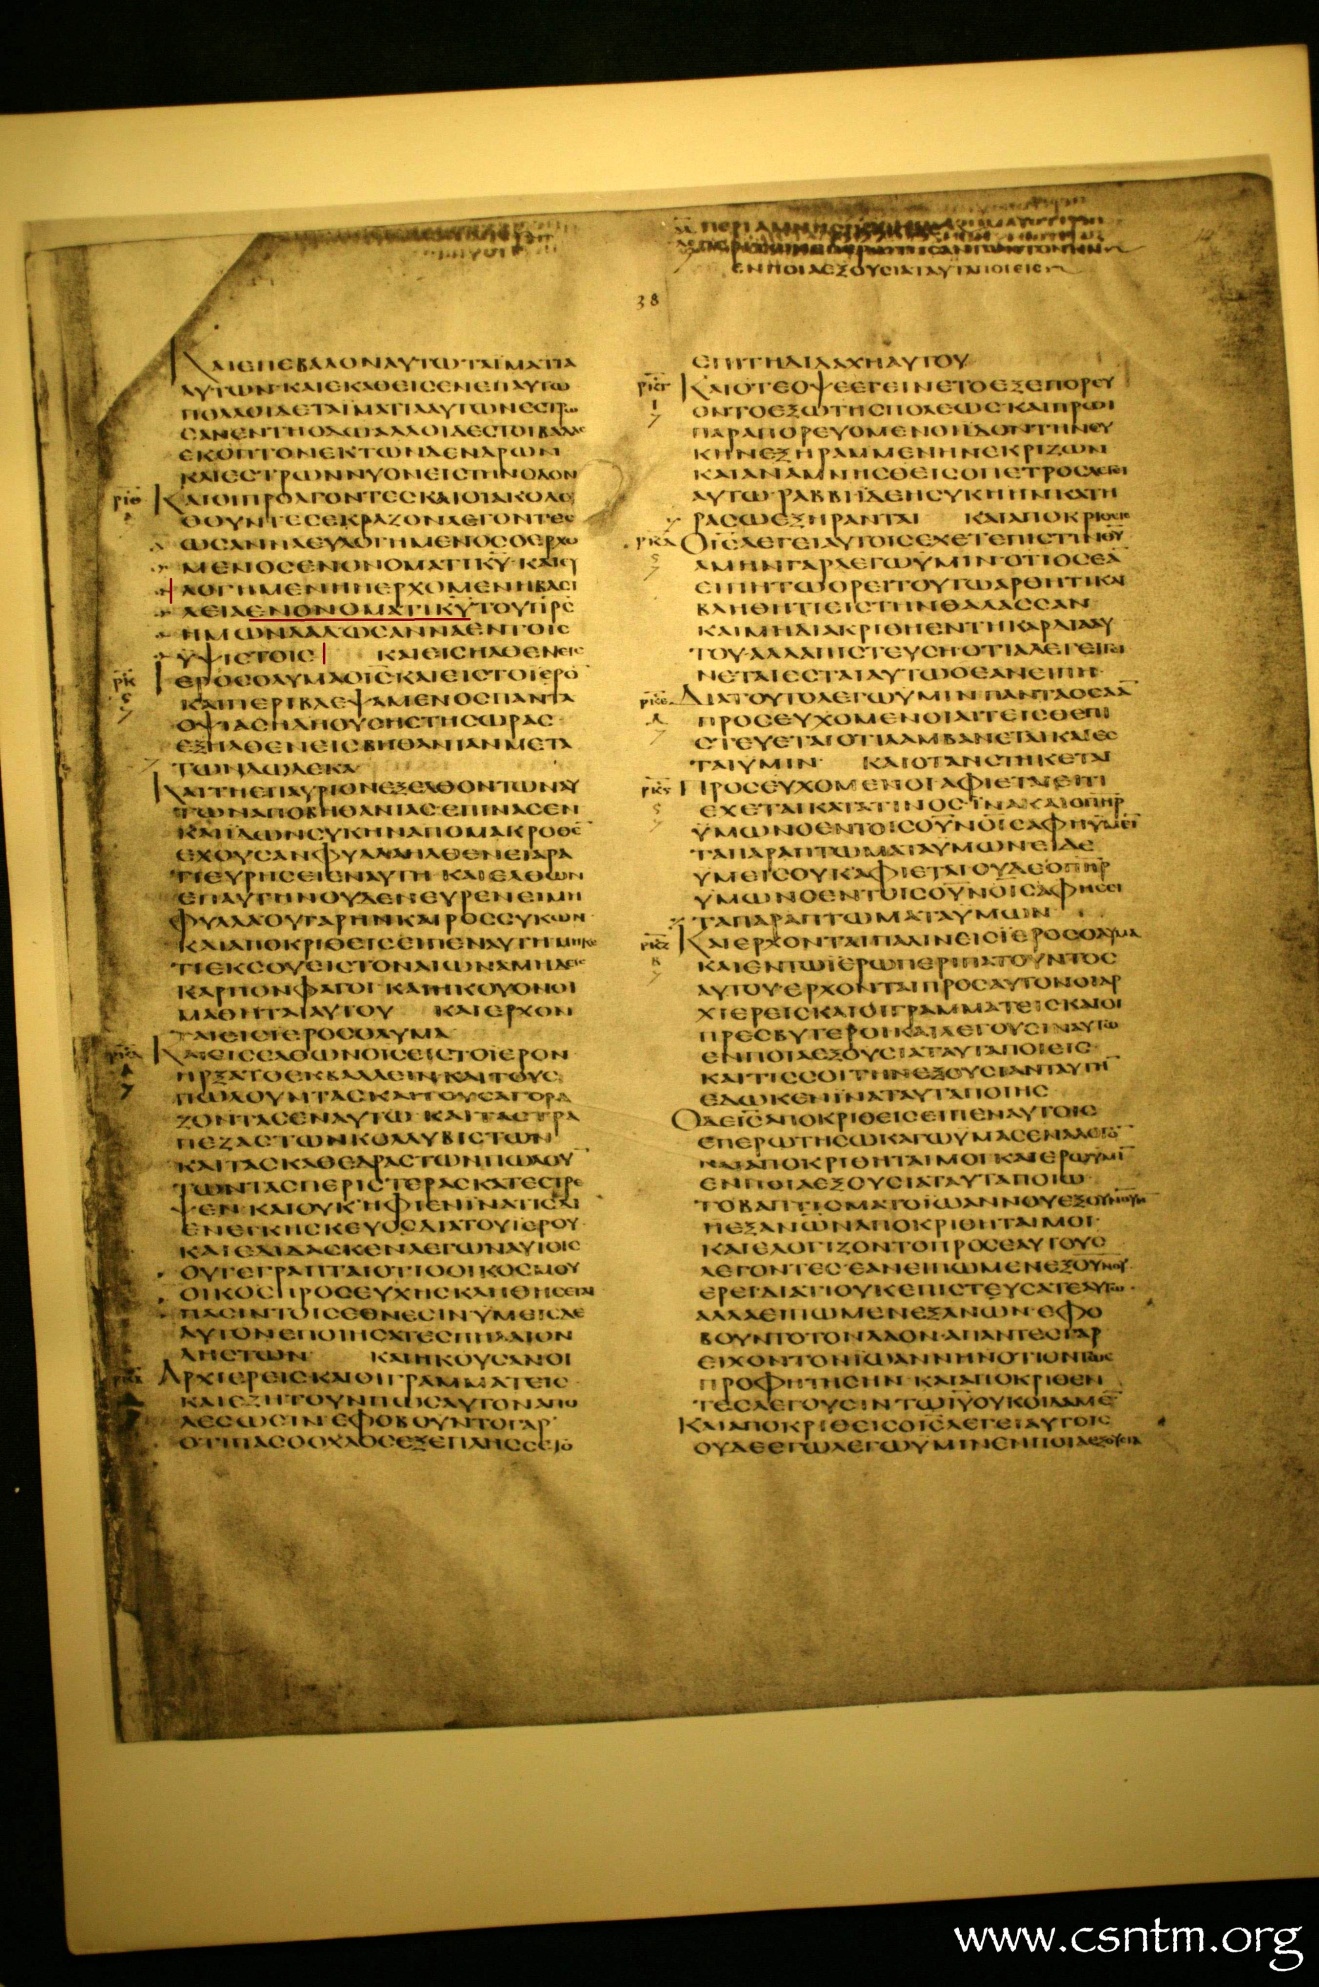 38
ΚΑΙΕΠΕΒΑΛΟΝΑΥΤΩΤΑΪΜΑΤΙΑ
ΑΥΤΩΝ·ΚΑΙΕΚΑΘΕΙСΕΝΕΠΑΥΤΩ
ΠΟΛΛΟΙΔΕΤΑΪΜΑΤΙΑΑΥΤΩΝΕСΤΡΩ
СΑΝΕΝΤΗΟΔΩΑΛΛΟΙΔΕСΤΟΙΒΑΔΑС
ΕΚΟΠΤΟΝΕΚΤΩΝΔΕΝΔΡΩΝ
ΚΑΙΕСΤΡΩΝΝΥΟΝΕΙСΤΗΝΟΔΟΝ
ΚΑΙΟΙΠΡΟΑΓΟΝΤΕСΚΑΙΟΙΑΚΟΛΟΥ
ΘΟΥΝΤΕСΕΚΡΑΖΟΝΛΕΓΟΝΤΕС
ΩСΑΝΝΑΕΥΛΟΓΗΜΕΝΟСΟΕΡΧΟ
ΜΕΝΟСΕΝΟΝΟΜΑΤΙΚΥ·ΚΑΙΕΥ
ΛΟΓΗΜΕΝΗΗΕΡΧΟΜΕΝΗΒΑСΙ
ΛΕΙΑΕΝΟΝΟΜΑΤΙΚΥΤΟΥΠΡС
ΗΜΩΝΔΑΔΩСΑΝΝΑΕΝΤΟΙС
ΥΨΙСΤΟΙС ΚΑΙΕΙСΗΛΘΕΝΕΙС
ΙΕΡΟСΟΛΥΜΑΟΙСΚΑΙΕΙСΤΟΪΕΡΟ
ΚΑΙΠΕΡΙΒΛΕΨΑΜΕΝΟСΠΑΝΤΑ
ΟΨΙΑСΗΔΗΟΥСΗСΤΗСΩΡΑС·
ΕΞΗΛΘΕΝΕΙСΒΗΘΑΝΙΑΝΜΕΤΑ
ΤΩΝΔΩΔΕΚΑ
ΚΑΙΤΗΕΠΑΥΡΙΟΝΕΞΕΛΘΟΝΤΩΝΑΥ
ΤΩΝΑΠΟΒΗΘΑΝΙΑСΕΠΙΝΑСΕΝ
ΚΑΙΪΔΩΝСΥΚΗΝΑΠΟΜΑΚΡΟΘΕ
ΕΧΟΥСΑΝΦΥΛΛΑΗΛΘΕΝΕΙΑΡΑ
ΤΙΕΥΡΗСΕΙΕΝΑΥΤΗ·ΚΑΙΕΛΘΩΝ
ΕΠΑΥΤΗΝΟΥΔΕΝΕΥΡΕΝΕΙΜΗ
ΦΥΛΛΑΟΥΓΑΡΗΝΚΑΙΡΟССΥΚΩΝ
ΚΑΙΑΠΟΚΡΙΘΕΙСΕΙΠΕΝΑΥΤΗΜΗΚΕ
ΤΙΕΚСΟΥΕΙСΤΟΝΑΙΩΝΑΜΗΔΕΙС
ΚΑΡΠΟΝΦΑΓΟΙ·ΚΑΙΗΚΟΥΟΝΟΙ
ΜΑΘΗΤΑΙΑΥΤΟΥ ΚΑΙΕΡΧΟΝ
ΤΑΙΕΙСΙΕΡΟСΟΛΥΜΑ
ΚΑΙΕΙСΕΛΘΩΝΟΙСΕΙСΤΟΪΕΡΟΝ
ΗΡΞΑΤΟΕΚΒΑΛΛΕΙΝΚΑΙΤΟΥС
ΠΩΛΟΥΝΤΑСΚΑΙΤΟΥСΑΓΟΡΑ
ΖΟΝΤΑСΕΝΑΥΤΩ·ΚΑΙΤΑСΤΡΑ
ΠΕΖΑСΤΩΝΚΟΛΛΥΒΙСΤΩΝ
ΚΑΙΤΑСΚΑΘΕΔΡΑСΤΩΝΠΩΛΟΥ
ΤΩΝΤΑСΠΕΡΙСΤΕΡΑСΚΑΤΕСΤΡΕ
ΨΕΝ·ΚΑΙΟΥΚΗΦΙΕΝΪΝΑΤΙСΔΙ
ΕΝΕΓΚΗСΚΕΥΟСΔΙΑΤΟΥΙΕΡΟΥ
ΚΑΙΕΔΙΔΑСΚΕΝΛΕΓΩΝΑΥΤΟΙС
ΟΥΓΕΓΡΑΠΤΑΙΟΤΙΟΟΙΚΟСΜΟΥ
ΟΙΚΟСΠΡΟСΕΥΧΗСΚΛΗΘΗСΕΤΑΙ
ΠΑСΙΝΤΟΙСΕΘΝΕСΙΝ·ΥΜΕΙСΔΕ
ΑΥΤΟΝΕΠΟΙΗСΑΤΕСΠΗΛΑΙΟΝ
ΛΗСΤΩΝ ΚΑΙΗΚΟΥСΑΝΟΙ
ΑΡΧΙΕΡΕΙСΚΑΙΟΙΓΡΑΜΜΑΤΕΙС
ΚΑΙΕΖΗΤΟΥΝΠΩСΑΥΤΟΝΑΠΟ
ΛΕСΩСΙΝ·ΕΦΟΒΟΥΝΤΟΓΑΡ
ΟΤΙΠΑСΟΟΧΛΟСΕΞΕΠΛΗССΕΤΟ
ΕΝΠΟΙΑΕΞΟΥСΙΑΤΑΥΤΑΠΟΙΕΙС
ΕΠΙΤΗΔΙΔΑΧΗΑΥΤΟΥ
ΚΑΙΟΤΕΟΨΕΕΓΕΙΝΕΤΟΕΞΕΠΟΡΕΥ
ΟΝΤΟΕΞΩΤΗСΠΟΛΕΩС·ΚΑΙΠΡΩΪ
ΠΑΡΑΠΟΡΕΥΟΜΕΝΟΙΪΔΟΝΤΗΝСΥ
ΚΗΝΕΞΗΡΑΜΜΕΝΗΝΕΚΡΙΖΩΝ
ΚΑΙΑΝΑΜΝΗСΘΕΙСΟΠΕΤΡΟСΛΕΓΕΙ
ΑΥΤΩ·ΡΑΒΒΕΙΪΔΕΗСΥΚΗΗΝΚΑΤΗ
ΡΑСΩΕΞΗΡΑΝΤΑΙ ΚΑΙΑΠΟΚΡΙΘΕΙС
ΟΙСΛΕΓΕΙΑΥΤΟΙСΕΧΕΤΕΠΙСΤΙΝΘΥ
ΑΜΗΝΓΑΡΛΕΓΩΥΜΙΝΟΤΙΟСΕΑ
ΕΙΠΗΤΩΟΡΕΙΤΟΥΤΩΑΡΘΗΤΙΚΑΙ
ΒΛΗΘΗΤΙΕΙСΤΗΝΘΑΛΑССΑΝ
ΚΑΙΜΗΔΙΑΚΡΙΘΗΕΝΤΗΚΑΡΔΙΑΑΥ
ΤΟΥ·ΑΛΛΑΠΙСΤΕΥСΗΟΤΙΑΛΕΓΕΙΓΙ
ΝΕΤΑΙΕСΤΑΙΑΥΤΩΟΕΑΝΕΙΠΗ·
ΔΙΑΤΟΥΤΟΛΕΓΩΥΜΙΝΠΑΝΤΑΟСΑΑ
ΠΡΟСΕΥΧΟΜΕΝΟΙΑΙΤΕΙСΘΕΠΙ
СΤΕΥΕΤΑΙΟΤΙΛΑΜΒΑΝΕΤΑΙΚΑΙΕС
ΤΑΙΥΜΙΝ· ΚΑΙΟΤΑΝСΤΗΚΕΤΑΙ
ΠΡΟСΕΥΧΟΜΕΝΟΙΑΦΙΕΤΑΙΕΙΤΙ
ΕΧΕΤΑΙΚΑΤΑΤΙΝΟСΪΝΑΚΑΙΟΠΗΡ
ΥΜΩΝΟΕΝΤΟΙСΟΥΝΟΙСΑΦΗΥΜΕΙ
ΤΑΠΑΡΑΠΤΩΜΑΤΑΥΜΩΝΕΙΔΕ
ΥΜΕΙСΟΥΚΑΦΙΕΤΑΙΟΥΔΕΟΠΗΡ
ΥΜΩΝΟΕΝΤΟΙСΟΥΝΟΙСΑΦΗСΕΙ
ΤΑΠΑΡΑΠΤΩΜΑΤΑΥΜΩΝ
ΚΑΙΕΡΧΟΝΤΑΙΠΑΛΙΝΕΙСΪΕΡΟСΟΛΥΜΑ
ΚΑΙΕΝΤΩΪΕΡΩΠΕΡΙΠΑΤΟΥΝΤΟС
ΑΥΤΟΥ·ΕΡΧΟΝΤΑΙΠΡΟСΑΥΤΟΝΟΙΑΡ
ΧΙΕΡΕΙСΚΑΙΟΙΓΡΑΜΜΑΤΕΙСΚΑΙΟΙ
ΠΡΕСΒΥΤΕΡΟΙΚΑΙΛΕΓΟΥСΙΝΑΥΤΩ
ΕΝΠΟΙΑΕΞΟΥСΙΑΤΑΥΤΑΠΟΙΕΙС
ΚΑΙΤΙССΟΙΤΗΝΕΞΟΥСΙΑΝΤΑΥΤΗ
ΕΔΩΚΕΝΪΝΑΤΑΥΤΑΠΟΙΗС
ΟΔΕΙСΑΠΟΚΡΙΘΕΙСΕΙΠΕΝΑΥΤΟΙС
ΕΠΕΡΩΤΗСΩΚΑΓΩΥΜΑСΕΝΑΛΟΓΟ
ΚΑΙΑΠΟΚΡΙΘΗΤΑΙΜΟΙ·ΚΑΙΕΡΩΥΜΙ
ΕΝΠΟΙΑΕΞΟΥСΙΑΤΑΥΤΑΠΟΙΩ
ΤΟΒΑΠΤΙСΜΑΤΟΪΩΑΝΝΟΥΕΞΟΥΝΟΥΗΝ
ΗΕΞΑΝΩΝΑΠΟΚΡΙΘΗΤΑΙΜΟΙ·
ΚΑΙΕΛΟΓΙΖΟΝΤΟΠΡΟСΕΑΥΤΟΥС
ΛΕΓΟΝΤΕС·ΕΑΝΕΙΠΩΜΕΝΕΞΟΥΝΟΥ
ΕΡΕΙΔΙΑΤΙΟΥΚΕΠΙСΤΕΥСΑΤΕΑΥΤΩ·
ΑΛΛΑΕΙΠΩΜΕΝΕΞΑΝΩΝ·ΕΦΟ
ΒΟΥΝΤΟΤΟΝΛΑΟΝ·ΑΠΑΝΤΕСΓΑΡ
ΕΙΧΟΝΤΟΝΪΩΑΝΝΗΝΟΤΙΟΝΤΩС
ΠΡΟΦΗΤΗСΗΝ·ΚΑΙΑΠΟΚΡΙΘΕΝ
ΤΕСΛΕΓΟΥСΙΝΤΩΙΥΟΥΚΟΙΔΑΜΕ
ΚΑΙΑΠΟΚΡΙΘΕΙСΟΙСΛΕΓΕΙΑΥΤΟΙС
ΟΥΔΕΕΓΩΛΕΓΩΥΜΙΝΕΝΠΟΙΑΕΞΟΥСΙΑ
www.csntm.org